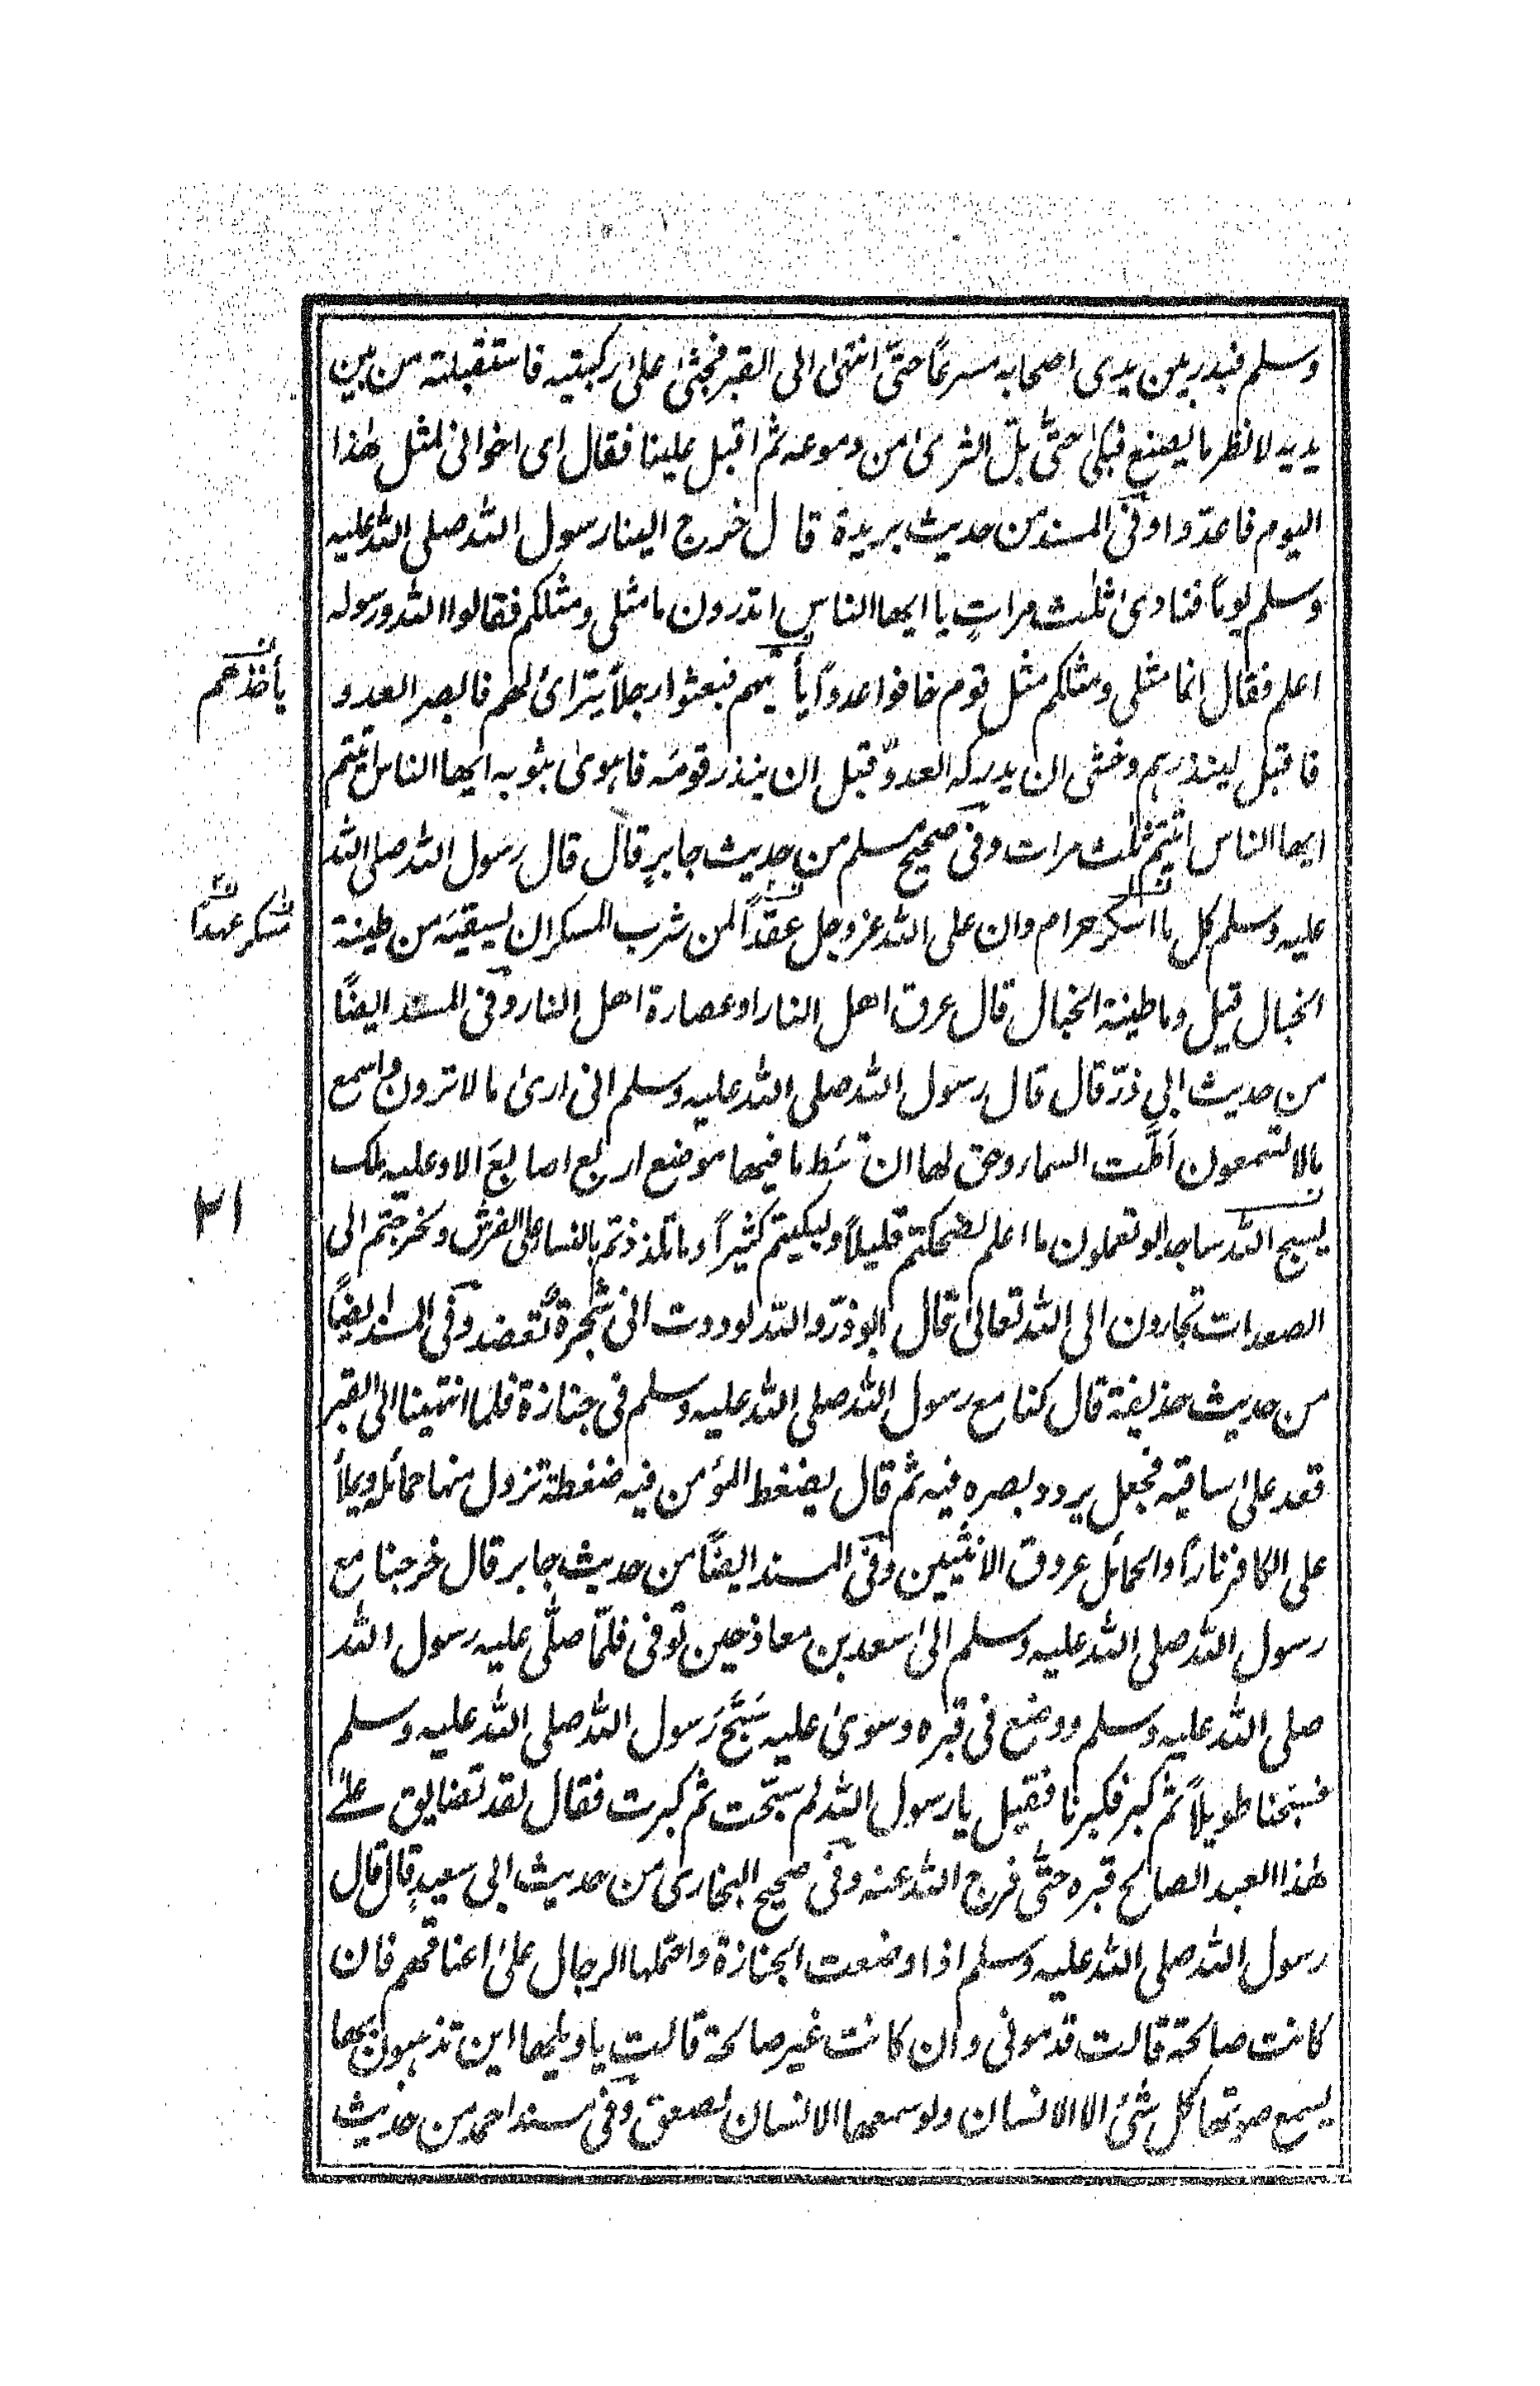 وسلم فبدر بين يدى اصحابه مسرعًا حتّى انتهى الى القبر فجثىٰ علىٰ ركبتيه فاستقبلته من بين
يديه لانظر ما يصنع فبكىٰ حتّى بلّ الثرىٰ من دموعه ثم اقبل علينا فقال اى اخوانى لمثل هٰذا
اليوم فاعدّوا وفى المسند من حديث بريدة قال خرج الينا رسول الله صلى الله عليه
وسلم يومًا فنادىٰ ثلٰث مراتٍ يا ايها الناس اتدرون ما مثلى ومثلكم فقالوا الله ورسوله
اعلم فقال انما مثلى ومثلكم مثل قوم خافوا عدوًا يأتيهم فبعثوا رجلاً يترائ لهم فابصر العدو
فاقبل لينذرهم وخشى ان يدركه العدوّ قبل ان ينذر قومَه فاهوىٰ بثوبه ايها الناس اتيتم
ايها الناس اتيتم ثلٰث مرات وفى صحيح مسلم من حديث جابرٍ قال قال رسول الله صلى الله
عليه وسلم كل ما اسكر حرام وان على الله عزوجل عقدًا لمن شرب المسكر ان يسقيَه من طينة
الخبال قيل وما طينة الخبال قال عرق اهل النار او عصارة اهل النار وفى المسند ايضًا
من حديث ابى ذرّ قال قال رسول الله صلى الله عليه وسلم انى ارىٰ ما لا ترون واسمع
ما لا تسمعون اَطَّت السماء وحق لها ان تَئِط ما فيها موضع اربع اصابعَ الا وعليه ملك
يسبح الله ساجدا لو تعلمون ما اعلم لضحكتم قليلاً ولبكيتم كثيراً وما تلذذتم بالنساء على الفرش ولخرجتم الى
الصعدات تجارون الى الله تعالىٰ قال ابو ذرّ والله لوددت انى شجرةٌ تُعضد وفى المسند ايضًا
من حديث حذيفة قال كنا مع رسول الله صلى الله عليه وسلم فى جنازة فلما انتهينا الى القبر
قعد علىٰ ساقيه فجعل يردد بصره فيه ثم قال يضغط المؤمن فيه ضغطة تزول منها حمائله ويملأ
على الكافر نارًا والحمائل عروق الانثيين وفى المسند ايضًا من حديث جابر قال خرجنا مع
رسول الله صلى الله عليه وسلم الىٰ سعد بن معاذ حين توفى فلمّا صلّٰى عليه رسول الله
صلى الله عليه وسلم ووضع فى قبره وسوىٰ عليه سَبَّحَ رسول الله صلى الله عليه وسلم
فسبحنا طويلاً ثم كبر فكبرنا فقيل يا رسول الله لم سبّحت ثم كبرت فقال لقد تضايق علىٰ
هٰذا العبد الصالح قبره حتّٰى فرج الله عنه وفى صحيح البخارى من حديث ابى سعيدٍ قال قال
رسول الله صلى الله عليه وسلم اذا وضعت الجنازة واحتملها الرجال علىٰ اعناقهم فان
كانت صالحة قالت قدمونى وان كانت غير صالحة قالت يا ويلها اين تذهبون بها
يسمع صوتها كل شئ الا الانسان ولو سمعها الانسان لصعق وفى مسند احمد من حديث
يأخذهم
مسكر عهداً
٢١